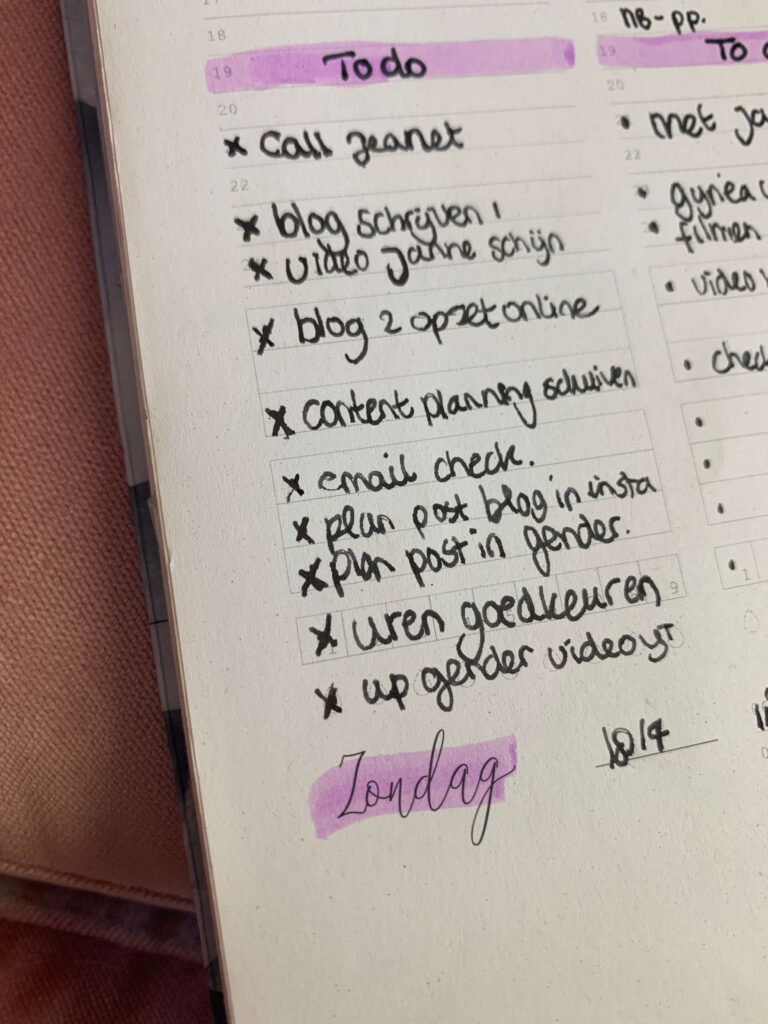 17
18
19 To do
20
x Call Jeanet
22
x blog schrijven 1
x video Janne schijn
x blog 2 opzet online
x content planning schuiven
x email check.
x plan post blog in insta
x plan post in gender.
x uren goedkeuren
9
x up gender video yt
Zondag
18 NB-pp.
19 To
20
• met Ja
22
• gynea
• filmen
• video
• check
•
•
•
• 1